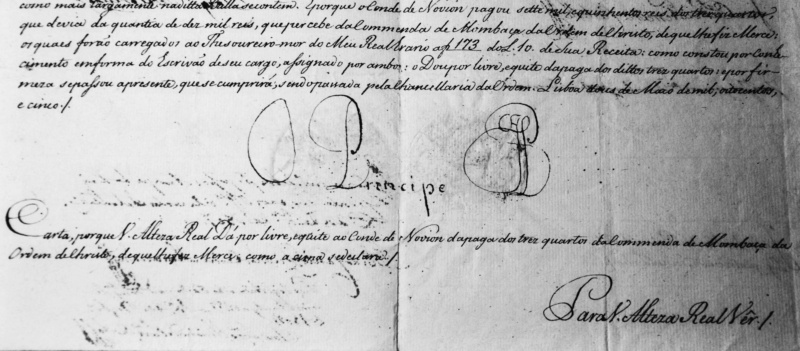 como mais largamente na dita Carta se contem. E porque o Conde de Novion pagou sette mil, equinhentos reis dos tres quartos,
que devia da quantia de dez mil reis, que percebe da Commenda de Mombaça da Ordem de Christo, de que lhe fiz Merce:
os quaes forão carregados ao Thesoureiro mor do Meu Real Erario a f 173 do L. 10. de sua Receita: como constou por Conhe-
cimento em forma do Escrivão de seu cargo, assignado por ambos: o Dou por livre, e quite da paga dos dittos tres quartos: e por fir-
meza se passou a presente, que se cumprirá, sendo passada pela Chancellaria da Ordem. Lisboa de Maio de mil, oitocentos,
e cinco /.
O Principe
Carta, porque V. Alteza Real Dá por livre, e quite ao Conde de Novion da paga dos tres quartos da Commenda de Mombaça da
Ordem de Christo, de que lhe fez Merce: como acima se declara /.
Para V. Alteza Real Vêr. /.